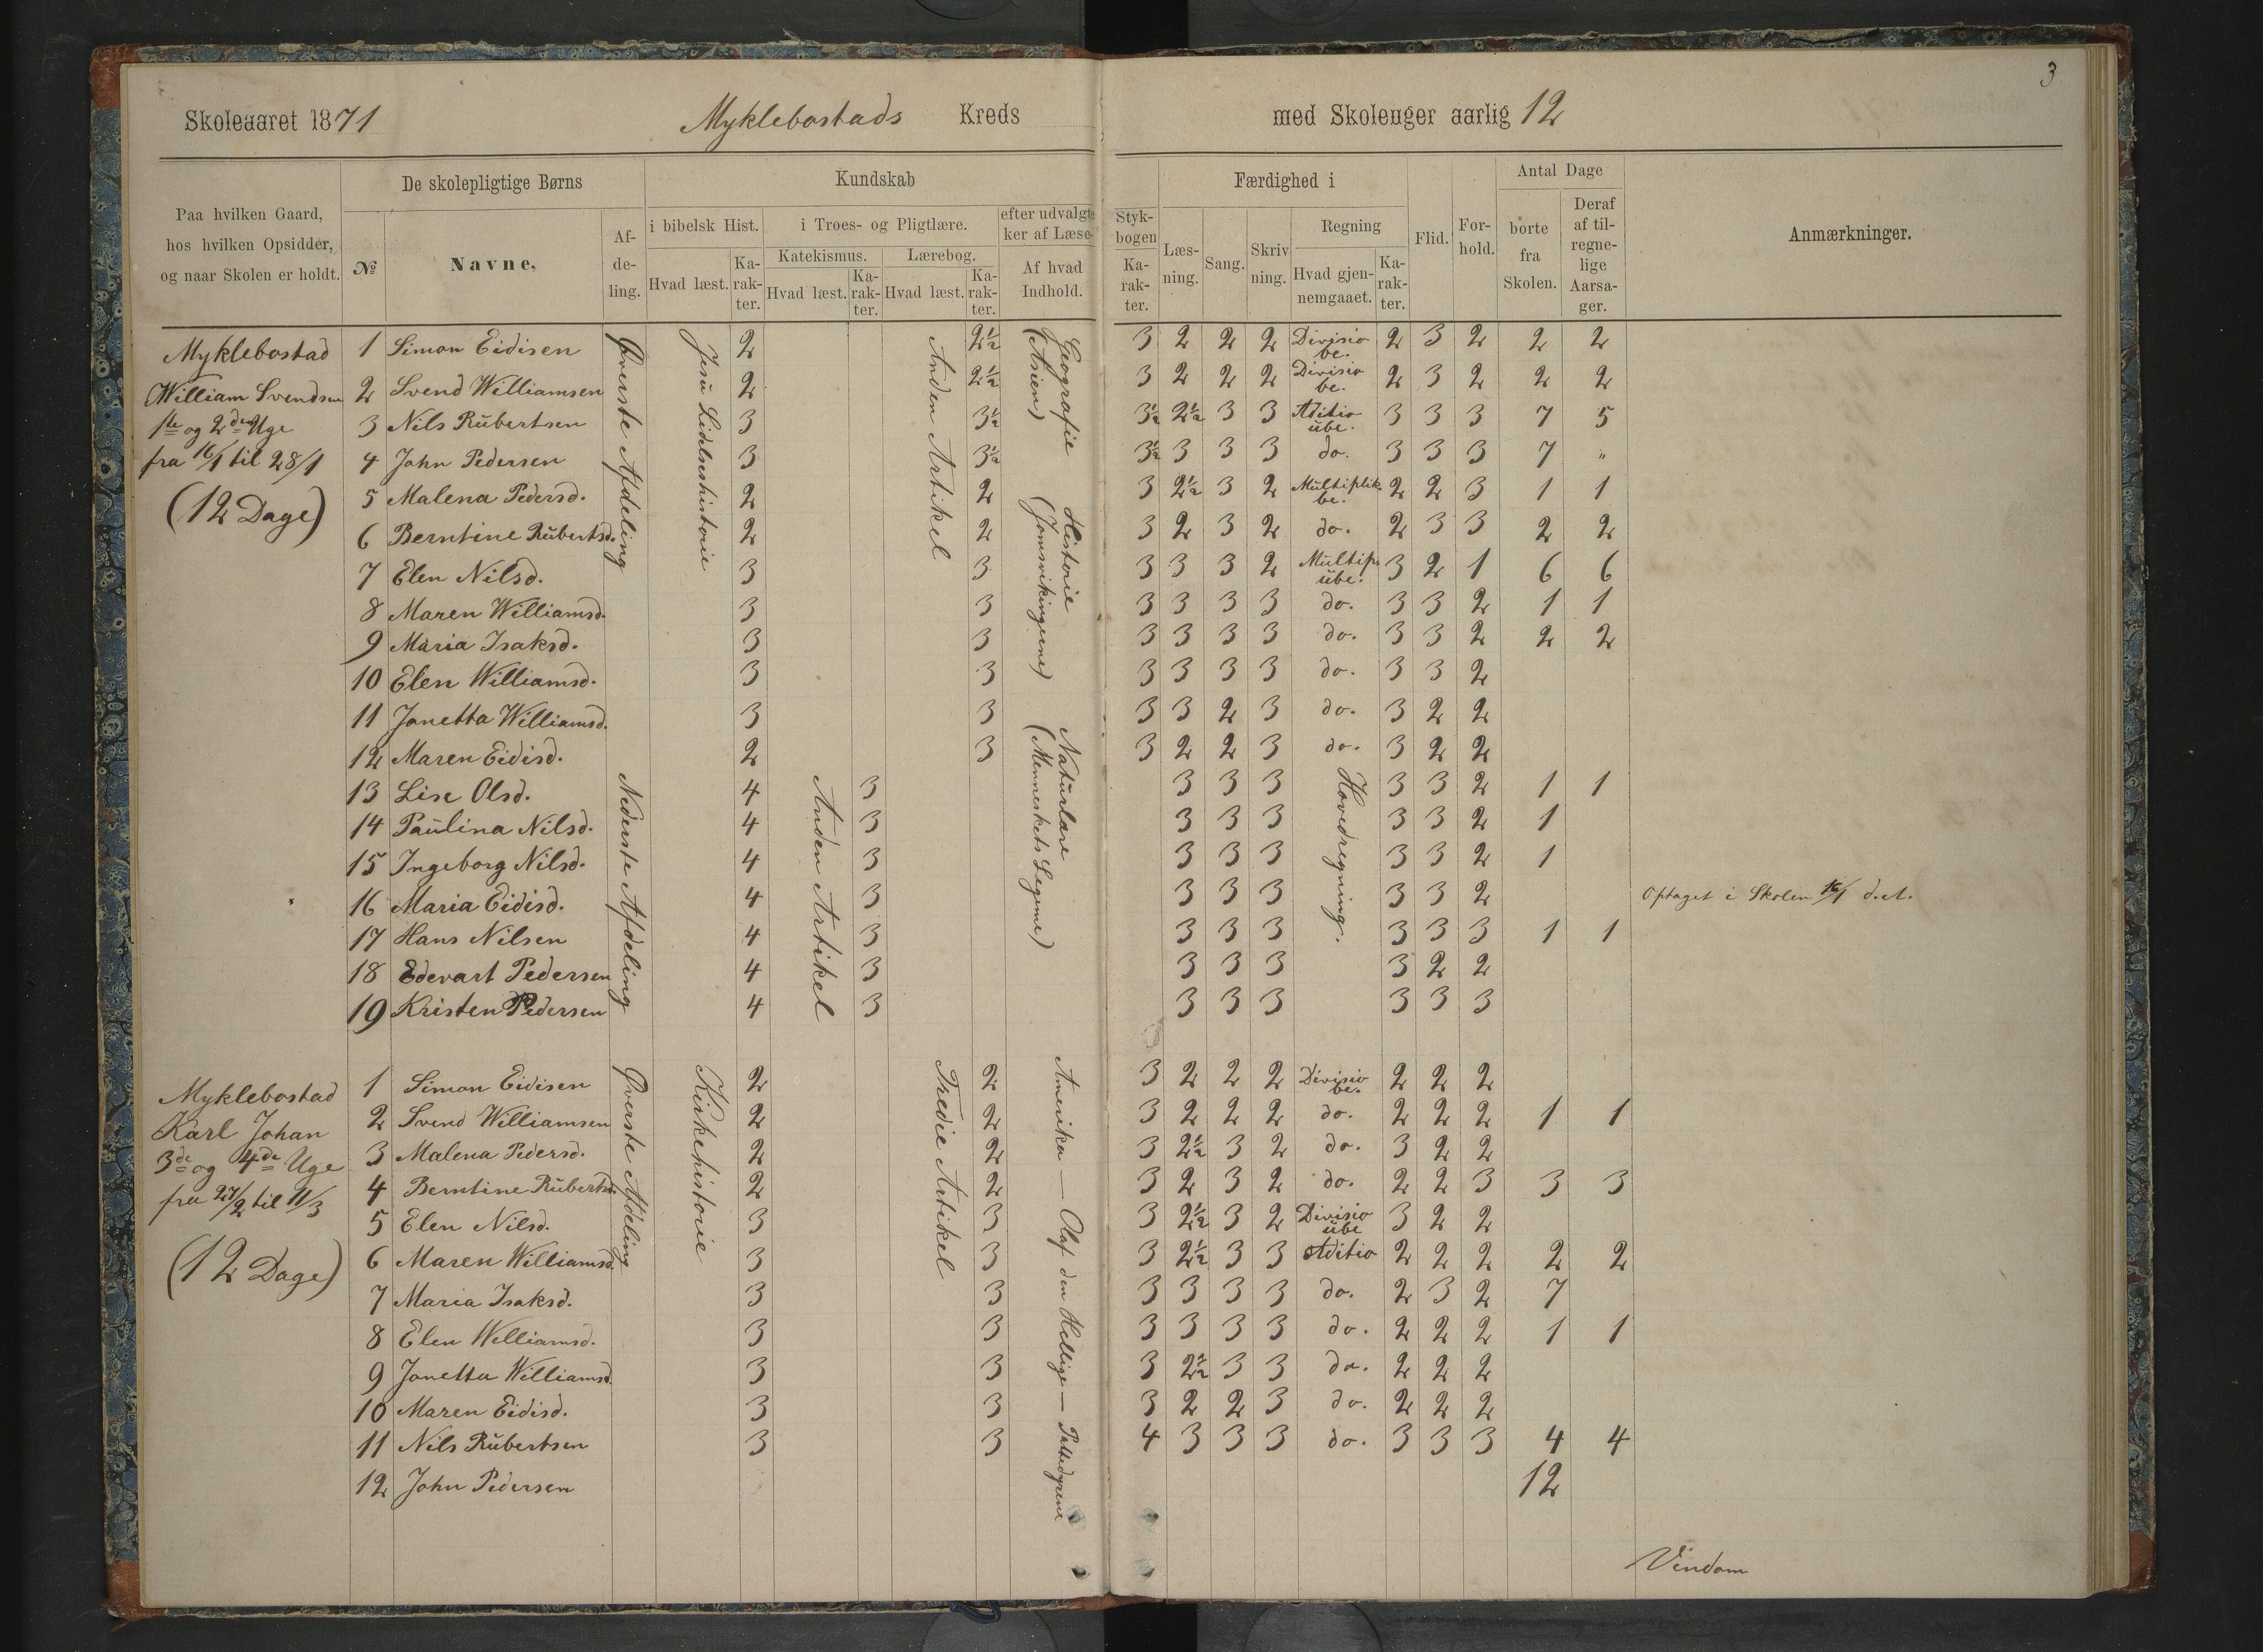 3
Skoleaaret 1871 Myklebostads Kreds med Skoleuger aarlig 12
Paa hvilken Gaard, hos hvilken Opsidder, og naar Skolen er holdt.
De skolepligtige Børns
№ Navne, Af-de-ling.
Kundskab
i bibelsk Hist. Hvad læst. Ka-rak-ter.
i Troes- og Pligtlære.
Katekismus. Hvad læst. Ka-rak-ter.
Lærebog. Hvad læst. Ka-rak-ter.
efter udvalgte ker af Læse-
Af hvad Indhold.
Styk-bogen Ka-rak-ter.
Færdighed i
Læs-ning. Sang. Skriv ning.
Regning Hvad gjen-nemgaaet. Ka-rak-ter.
Flid. For-hold.
Antal Dage
borte fra Skolen. Deraf af til-regne-lige Aarsa-ger.
Anmærkninger.
Myklebostad
William Svendsen
1ste og 2den Uge
fra 16/1 til 28/1
(12 Dage)
Øverste Afdeling
Jesu Lidelseshistorie
Anden Artikel
Geografie (Asien)
Historie (Jomsvikingerne)
Naturlære (Menneskets Legeme)
1 Simon Eidisen 2 2½ 3 2 2 2 Divisio be. 2 3 2 2 2
2 Svend Williamsen 2 2½ 3 2 2 2 Divisio be. 2 3 2 2 2
3 Nils Rŭbertsen 3 3½ 3½ 2½ 3 3 Aditio ŭbe. 3 3 3 7 5
4 John Pedersen 3 3½ 3½ 3 3 3 do. 3 3 3 7 "
5 Malena Pedersd. 2 2 3 2½ 3 2 Mŭltiplik. be. 2 2 3 1 1
6 Berntine Rŭbertsd. 2 2 3 2 3 2 do. 2 3 3 2 2
7 Elen Nilsd. 3 3 3 3 3 2 Mŭltip. ŭbe. 3 2 1 6 6
8 Maren Williamsd. 3 3 3 3 3 3 do. 3 3 2 1 1
9 Maria Isaksd. 3 3 3 3 3 3 do. 3 3 2 2 2
10 Elen Williamsd. 3 3 3 3 3 3 do. 3 3 2
11 Janetta Williamsd. 3 3 3 3 2 3 do. 3 2 2
12 Maren Eidisd. 2 3 3 2 2 3 do. 3 2 2
Nederste Afdeling
Anden Artikel
Hovedregning.
13 Lise Olsd. 4 3 3 3 3 3 3 2 1 1
14 Paŭlina Nilsd. 4 3 3 3 3 3 3 2 1
15 Ingeborg Nilsd. 4 3 3 3 3 3 3 2 1
16 Maria Eidisd. 4 3 3 3 3 3 3 2 Optaget i Skolen 16/1 d.A.
17 Hans Nilsen 4 3 3 3 3 3 3 3 1 1
18 Edevart Pedersen 4 3 3 3 3 3 2 2
19 Kristen Pedersen 4 3 3 3 3 3 3 3
Myklebostad
Karl Johan
3de og 4de Uge
fra 27/2 til 11/3
(12 Dage)
Øverste Afdeling
Kirkehistorie
Tredie Artikel
Amerika — Olaf den Hellige — Pattedyrene
1 Simon Eidisen 2 2 3 2 2 2 Divisio be. 2 2 2
2 Svend Williamsen 2 2 3 2 2 2 do. 2 2 2 1 1
3 Malena Pedersd. 2 2 3 2½ 3 2 do. 3 2 2
4 Berntine Rŭbertsd. 2 2 3 2 3 2 do. 2 2 3 3 3
5 Elen Nilsd. 3 3 3 2½ 3 2 Divisio ŭbe 3 2 2
6 Maren Williamsd. 3 3 3 2½ 3 3 Aditio 2 2 2 2 2
7 Maria Isaksd. 3 3 3 3 3 3 do. 2 3 2 7
8 Elen Williamsd. 3 3 3 3 3 3 do. 2 2 2 1 1
9 Janetta Williamsd. 3 3 3 2½ 3 3 do. 2 2 2
10 Maren Eidisd. 3 3 3 2 2 3 do. 2 2 2
11 Nils Rŭbertsen 3 3 4 3 3 3 do. 3 3 3 4 4
12 John Pedersen 12
Vendom